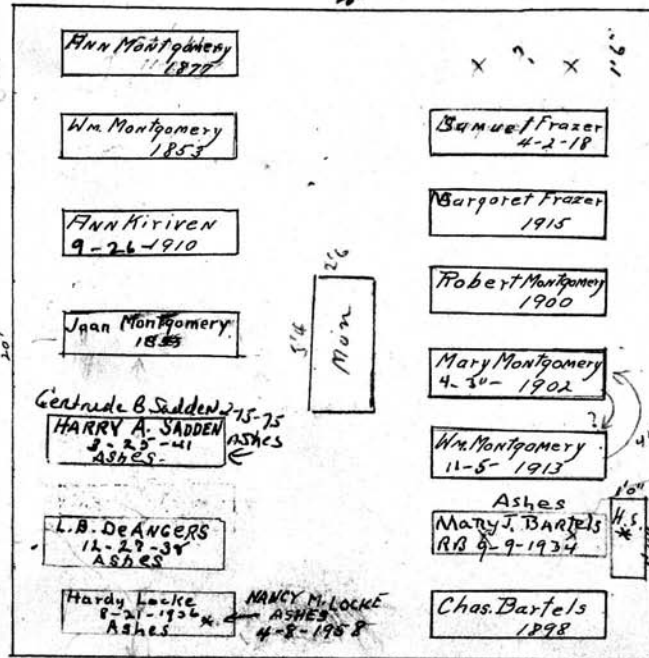 Ann Montgomery
1877
Wm. Montgomery
1853
Ann Kiriven
9-26-1910
Joan Montgomery
20'
Gertrude B Sadden 2-15-75
HARRY A. SADDEN
3-25-41
Ashes
Ashes
L.B. DeANGERS
12-27-38
Ashes
Hardy Locke
8-21-1936
Ashes
NANCY M. LOCKE
ASHES
4-8-1958
2'6
3'4
Mon
x ? x
1'6"
Samuel Frazer
4-2-18
Margaret Frazer
1915
Robert Montgomery
1900
Mary Montgomery
1902
?
4'
Wm. Montgomery
11-5-1913
Ashes
Mary J. Bartels
RB 9-9-1934
1'0"
H.S.
*
Chas. Bartels
1898